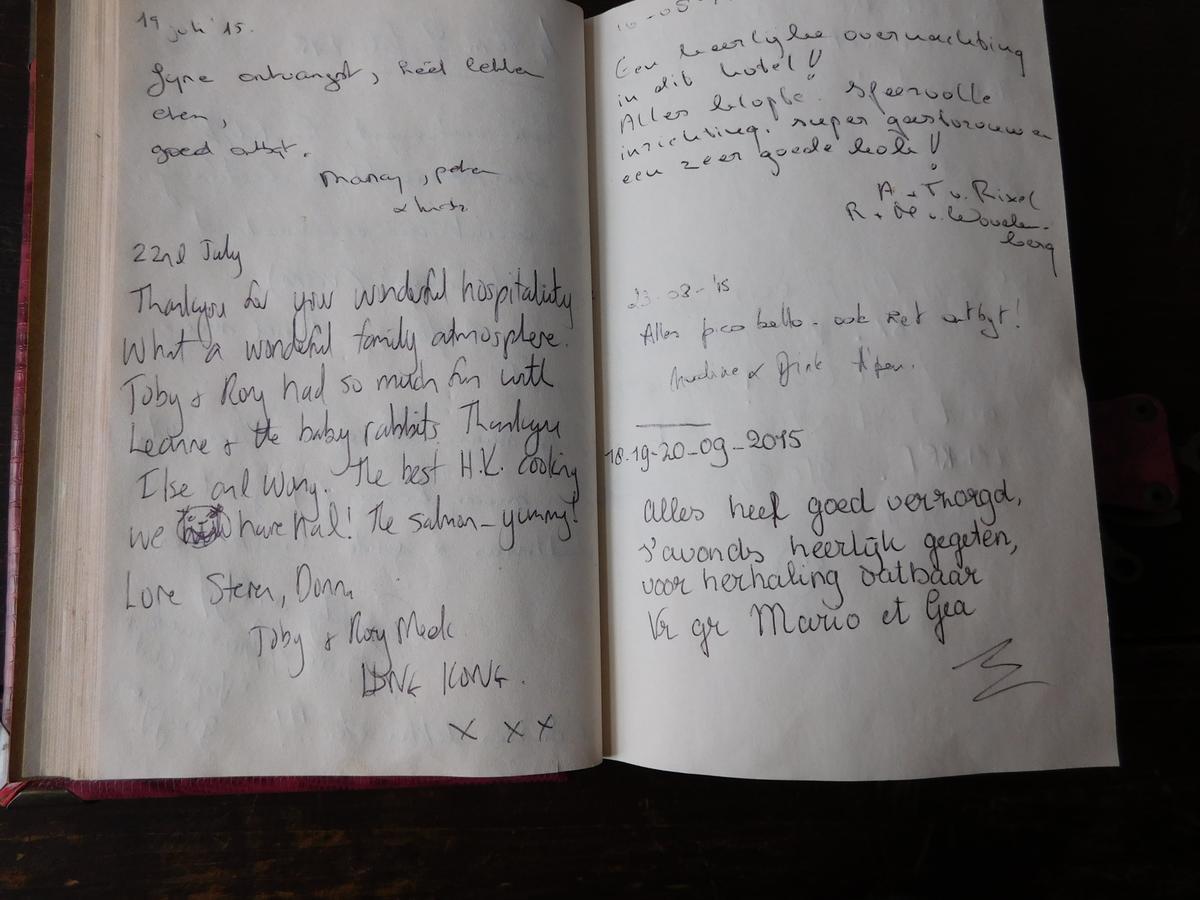 19 juli '15.
Fyne ontvangst, heel lekker
eten,
goed ontbyt.
22nd July
Thankyou for your wonderful hospitality
What a wonderful family atmosphere.
Toby & Rory had so much fun with
Leanne & the baby rabbits. Thankyou
Ilse and Wang. The best H.K. cooking
we have had! The salmon - yummy!
Love Steven, Donna
Toby & Rory Meek
HONG KONG.
X X X
Een heerlijke overnachting
in dit hotel!!
Alles klopte. Sfeervolle
inrichting, super gastvrouw en
een zeer goede kok!!
A + T v. Rixel
R + M v. Wouden-
berg
23-08-'15
Alles pico bello - ook het ontbyt!
18-19-20-09-2015
alles heel goed verzorgd,
s'avonds heerlijk gegeten,
voor herhaling vatbaar
Vr gr Mario et Gea